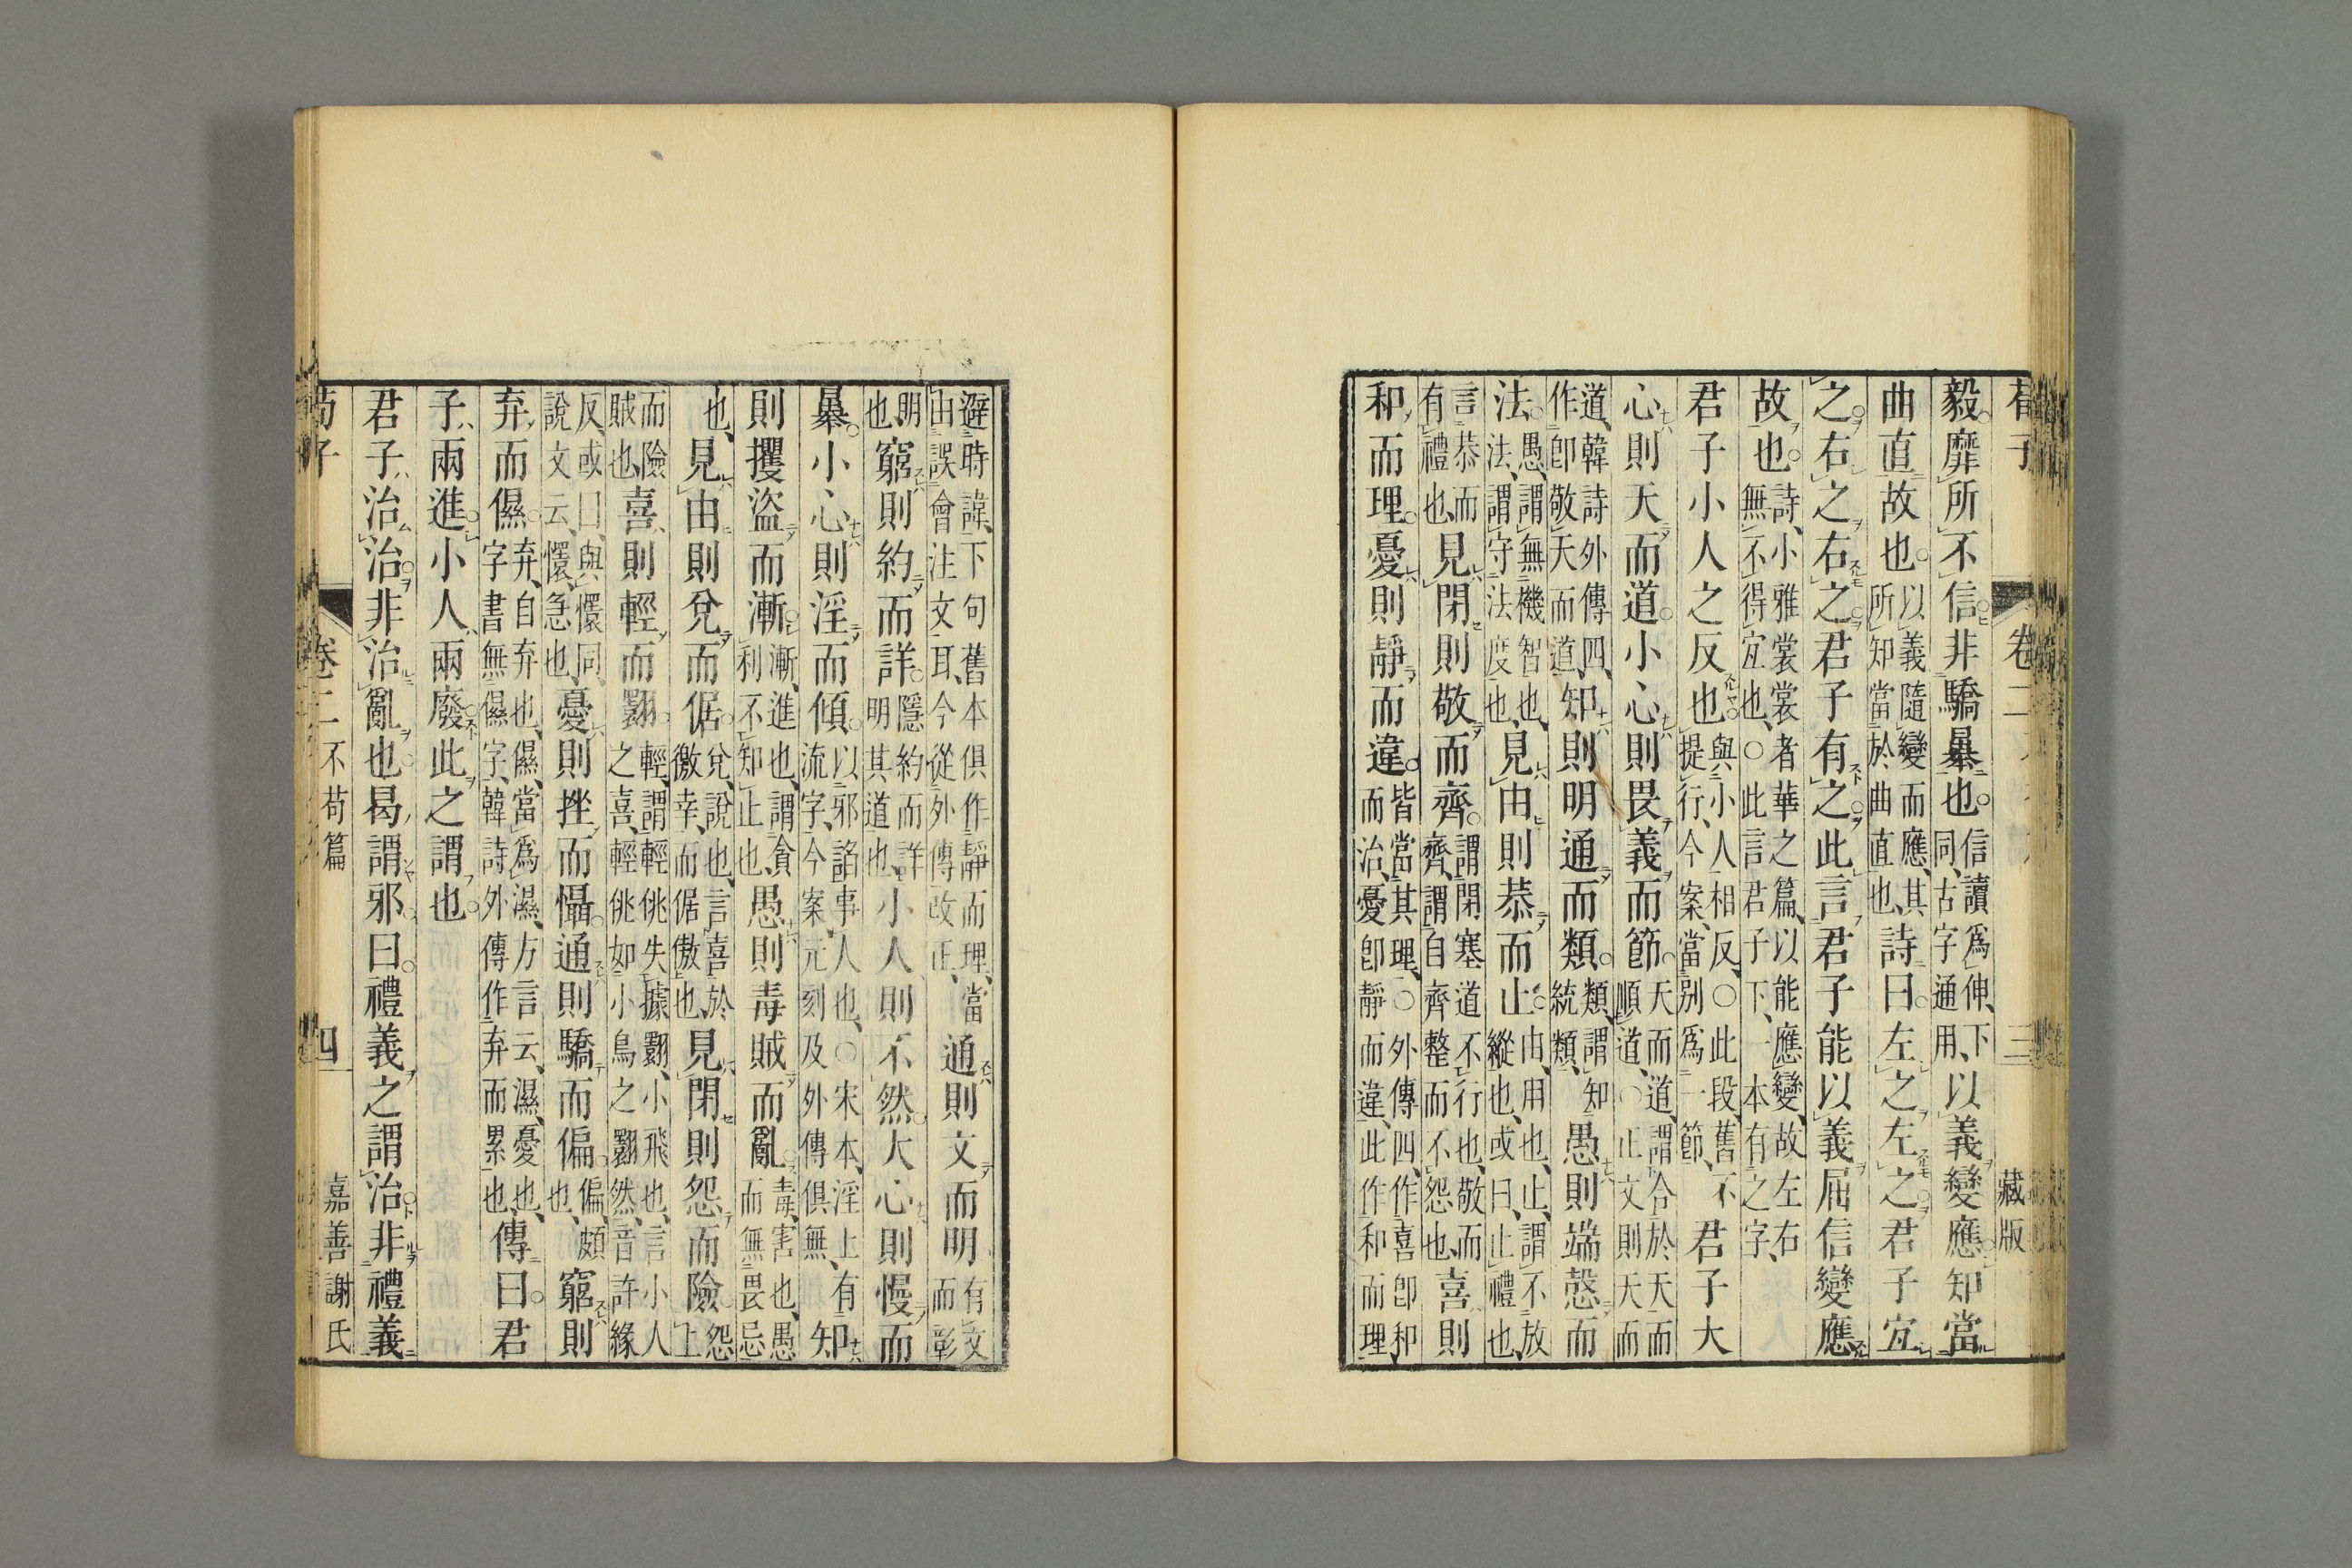 毅靡所不信非驕暴也信讀爲伸下同古字通用以義變應知當
曲直故也以義隨變而應其所知當於曲直也詩曰左之左之君子宜
之右之右之君子有之此言君子能以義屈信變應
故也詩小雅裳裳者華之篇以能應變故左右無不得宜也○此言君子下一本有之字
君子小人之反也與小人相反○此段舊不提行今案當別爲一節君子大
心則天而道小心則畏義而節天而道謂合於天而順道○正文則天而
道韓詩外傳四作卽敬天而道知則明通而類類謂知統類愚則端愨而
法愚謂無機智也法謂守法度也見由則恭而止由用也止謂不放縱也或曰止禮也
言恭而有禮也見閉則敬而齊謂閉塞道不行也敬而齊謂自齊整而不怨也喜則
和而理憂則靜而違皆當其理○外傳四作喜卽和而治憂卽靜而違此作和而理
避時諱下句舊本俱作靜而理當由誤會注文耳今從外傳改正通則文而明有文而彰
明也窮則約而詳隱約而詳明其道也小人則不然大心則慢而
暴小心則淫而傾以邪諂事人也○宋本淫上有流字今案元刻及外傳俱無知
則攫盜而漸漸進也謂貪利不知止也愚則毒賊而亂毒害也愚而無畏忌
也見由則兌而倨兌說也言喜於徼幸而倨傲也見閉則怨而險怨上
而險賊也喜則輕而翾輕謂輕佻失據翾小飛也言小人之喜輕佻如小鳥之翾然音許緣
反或曰與懁同說文云懁急也憂則挫而懾通則驕而偏偏頗也窮則
弃而儑弃自弃也儑當爲濕方言云濕憂也字書無儑字韓詩外傳作弃而累也傳曰君
子兩進小人兩廢此之謂也
君子治治非治亂也曷謂邪曰禮義之謂治非禮義
荀子 卷二 不苟篇 四 嘉善謝氏